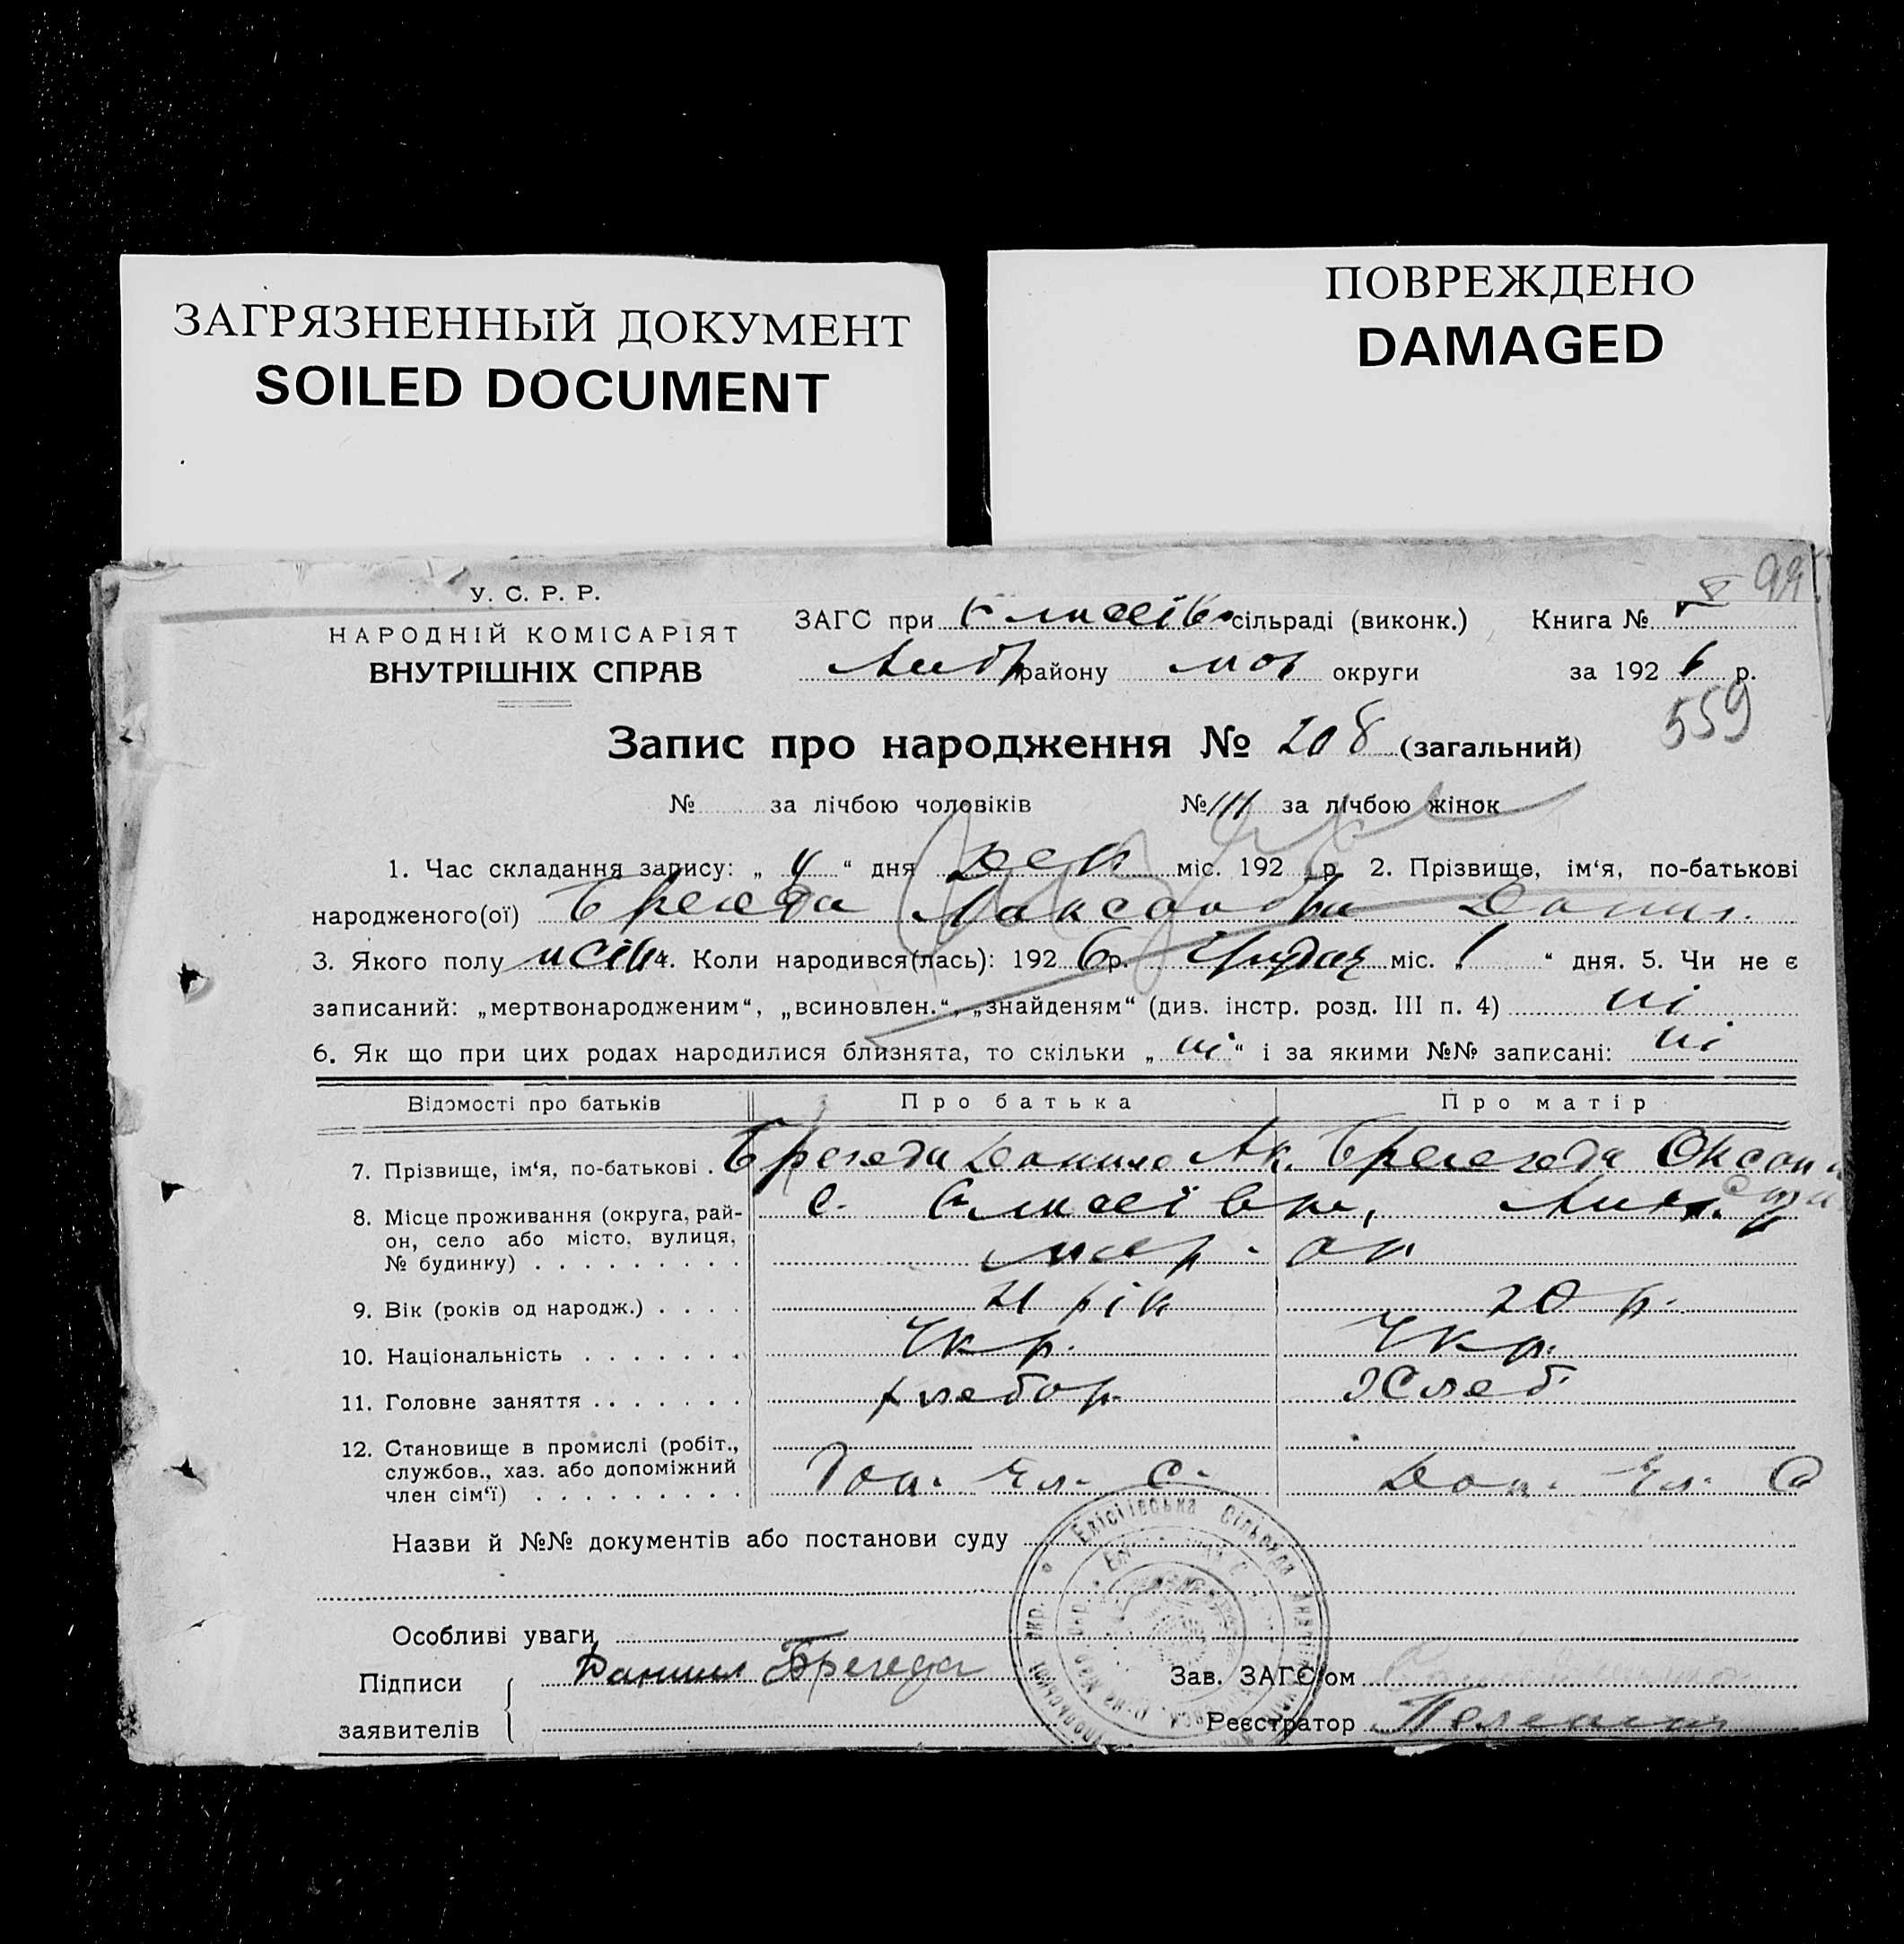 ЗАГРЯЗНЕННЫЙ ДОКУМЕНТ
SOILED DOCUMENT
ПОВРЕЖДЕНО
DAMAGED
99
У. С. Р. Р.
НАРОДНІЙ КОМІСАРІЯТ
ВНУТРІШНІХ СПРАВ
ЗАГС при сільраді (виконк.) Книга № V
району округи за 1926 р.
559
Запис про народження № 208 (загальний)
№ за лічбою чоловіків № 111 за лічбою жінок
1. Час складання запису: „ 4 “ дня Дек міс. 192 р. 2. Прізвище, ім‘я, по-батькові
народженого(ої) Брегеда
3. Якого полу 4. Коли народився(лась): 192 6 р. Грудня міс. „ 1 “ дня. 5. Чи не є
записаний: „мертвонародженим“, „всиновлен.“, „знайденям“ (див. інстр. розд. III п. 4) ні
6. Як що при цих родах народилися близнята, то скільки „ ні “ і за якими №№ записані: ні
Відомості про батьків Про батька Про матір
7. Прізвище, ім‘я, по-батькові . Брегеда Данило Ак. Брегеда Оксана
8. Місце проживання (округа, рай-
он, село або місто, вулиця,
№ будинку) . . . . . . . . . с. Єлисеївка,
мар. ок
9. Вік (років од народж.) . . . . 21 рік 20 р.
10. Національність . . . . . . . Укр. Укр.
11. Головне заняття . . . . . . . хлебор. хлеб.
12. Становище в промислі (робіт.,
службов., хаз. або допоміжний
член сім‘ї) . . . . . . . . . Доп. Чл. С. Доп. Чл. С
Назви й №№ документів або постанови суду
Єлісіївська Сільрада
Особливі уваги
Підписи
заявителів
Данил Брегеда
Зав. ЗАГС‘ом
Реєстратор